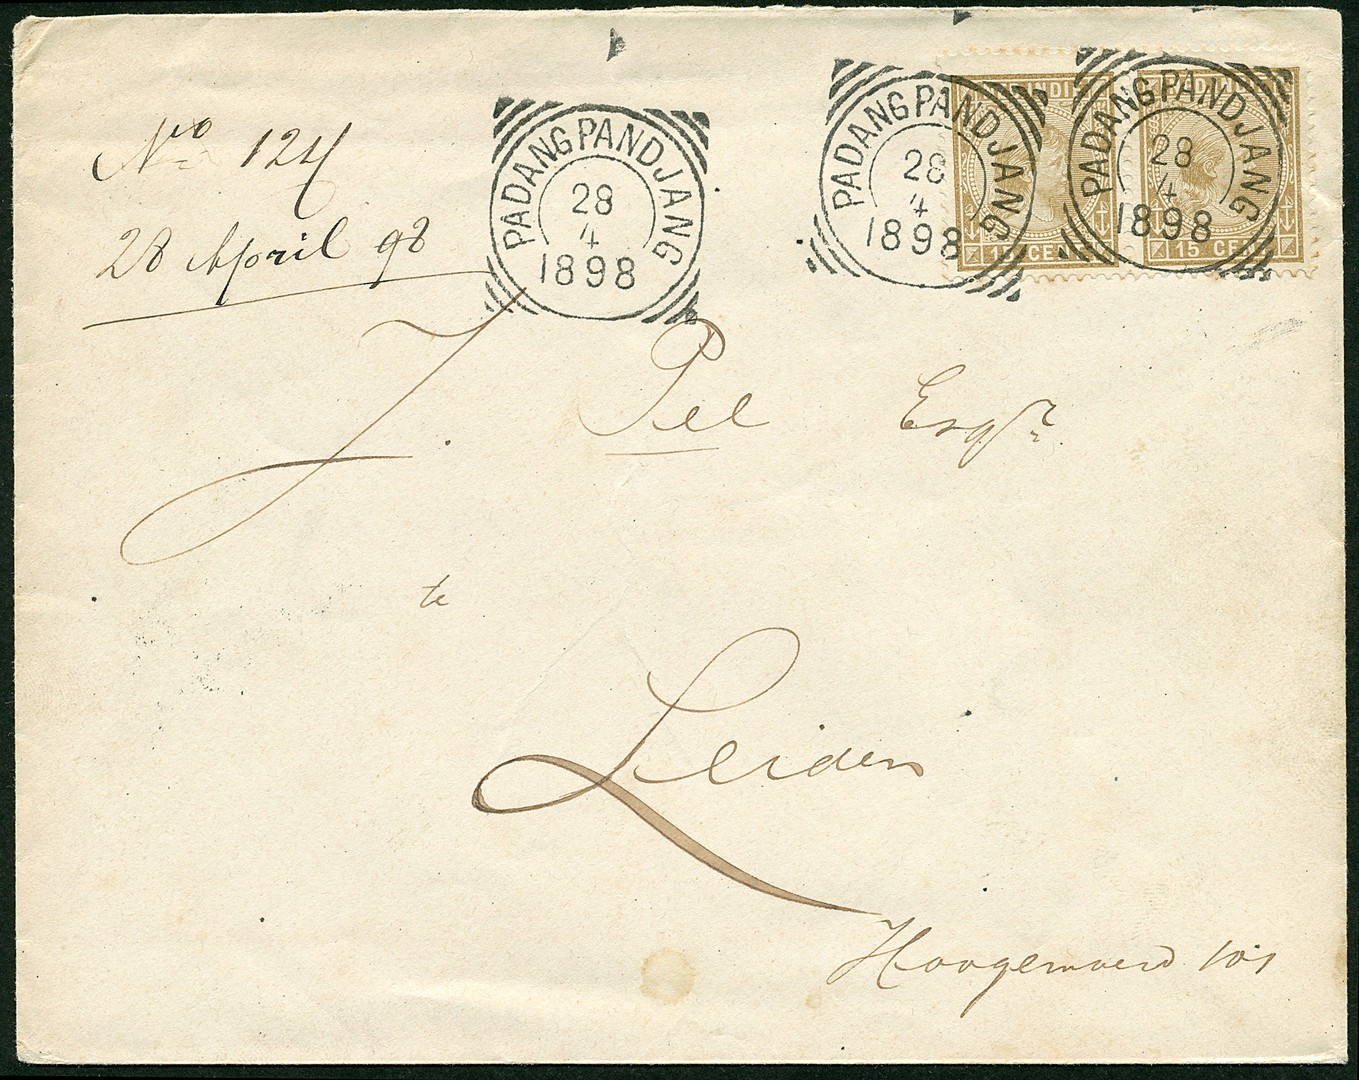 No 124
28 April 98
PADANGPANDJANG
28
4
1898
PADANGPANDJANG
28
4
1898
PADANGPANDJANG
28
4
1898
INDI
15 CEN
INDI
15 CE
J. Pel Esqr.
te
Leiden
Hoogewoerd 101